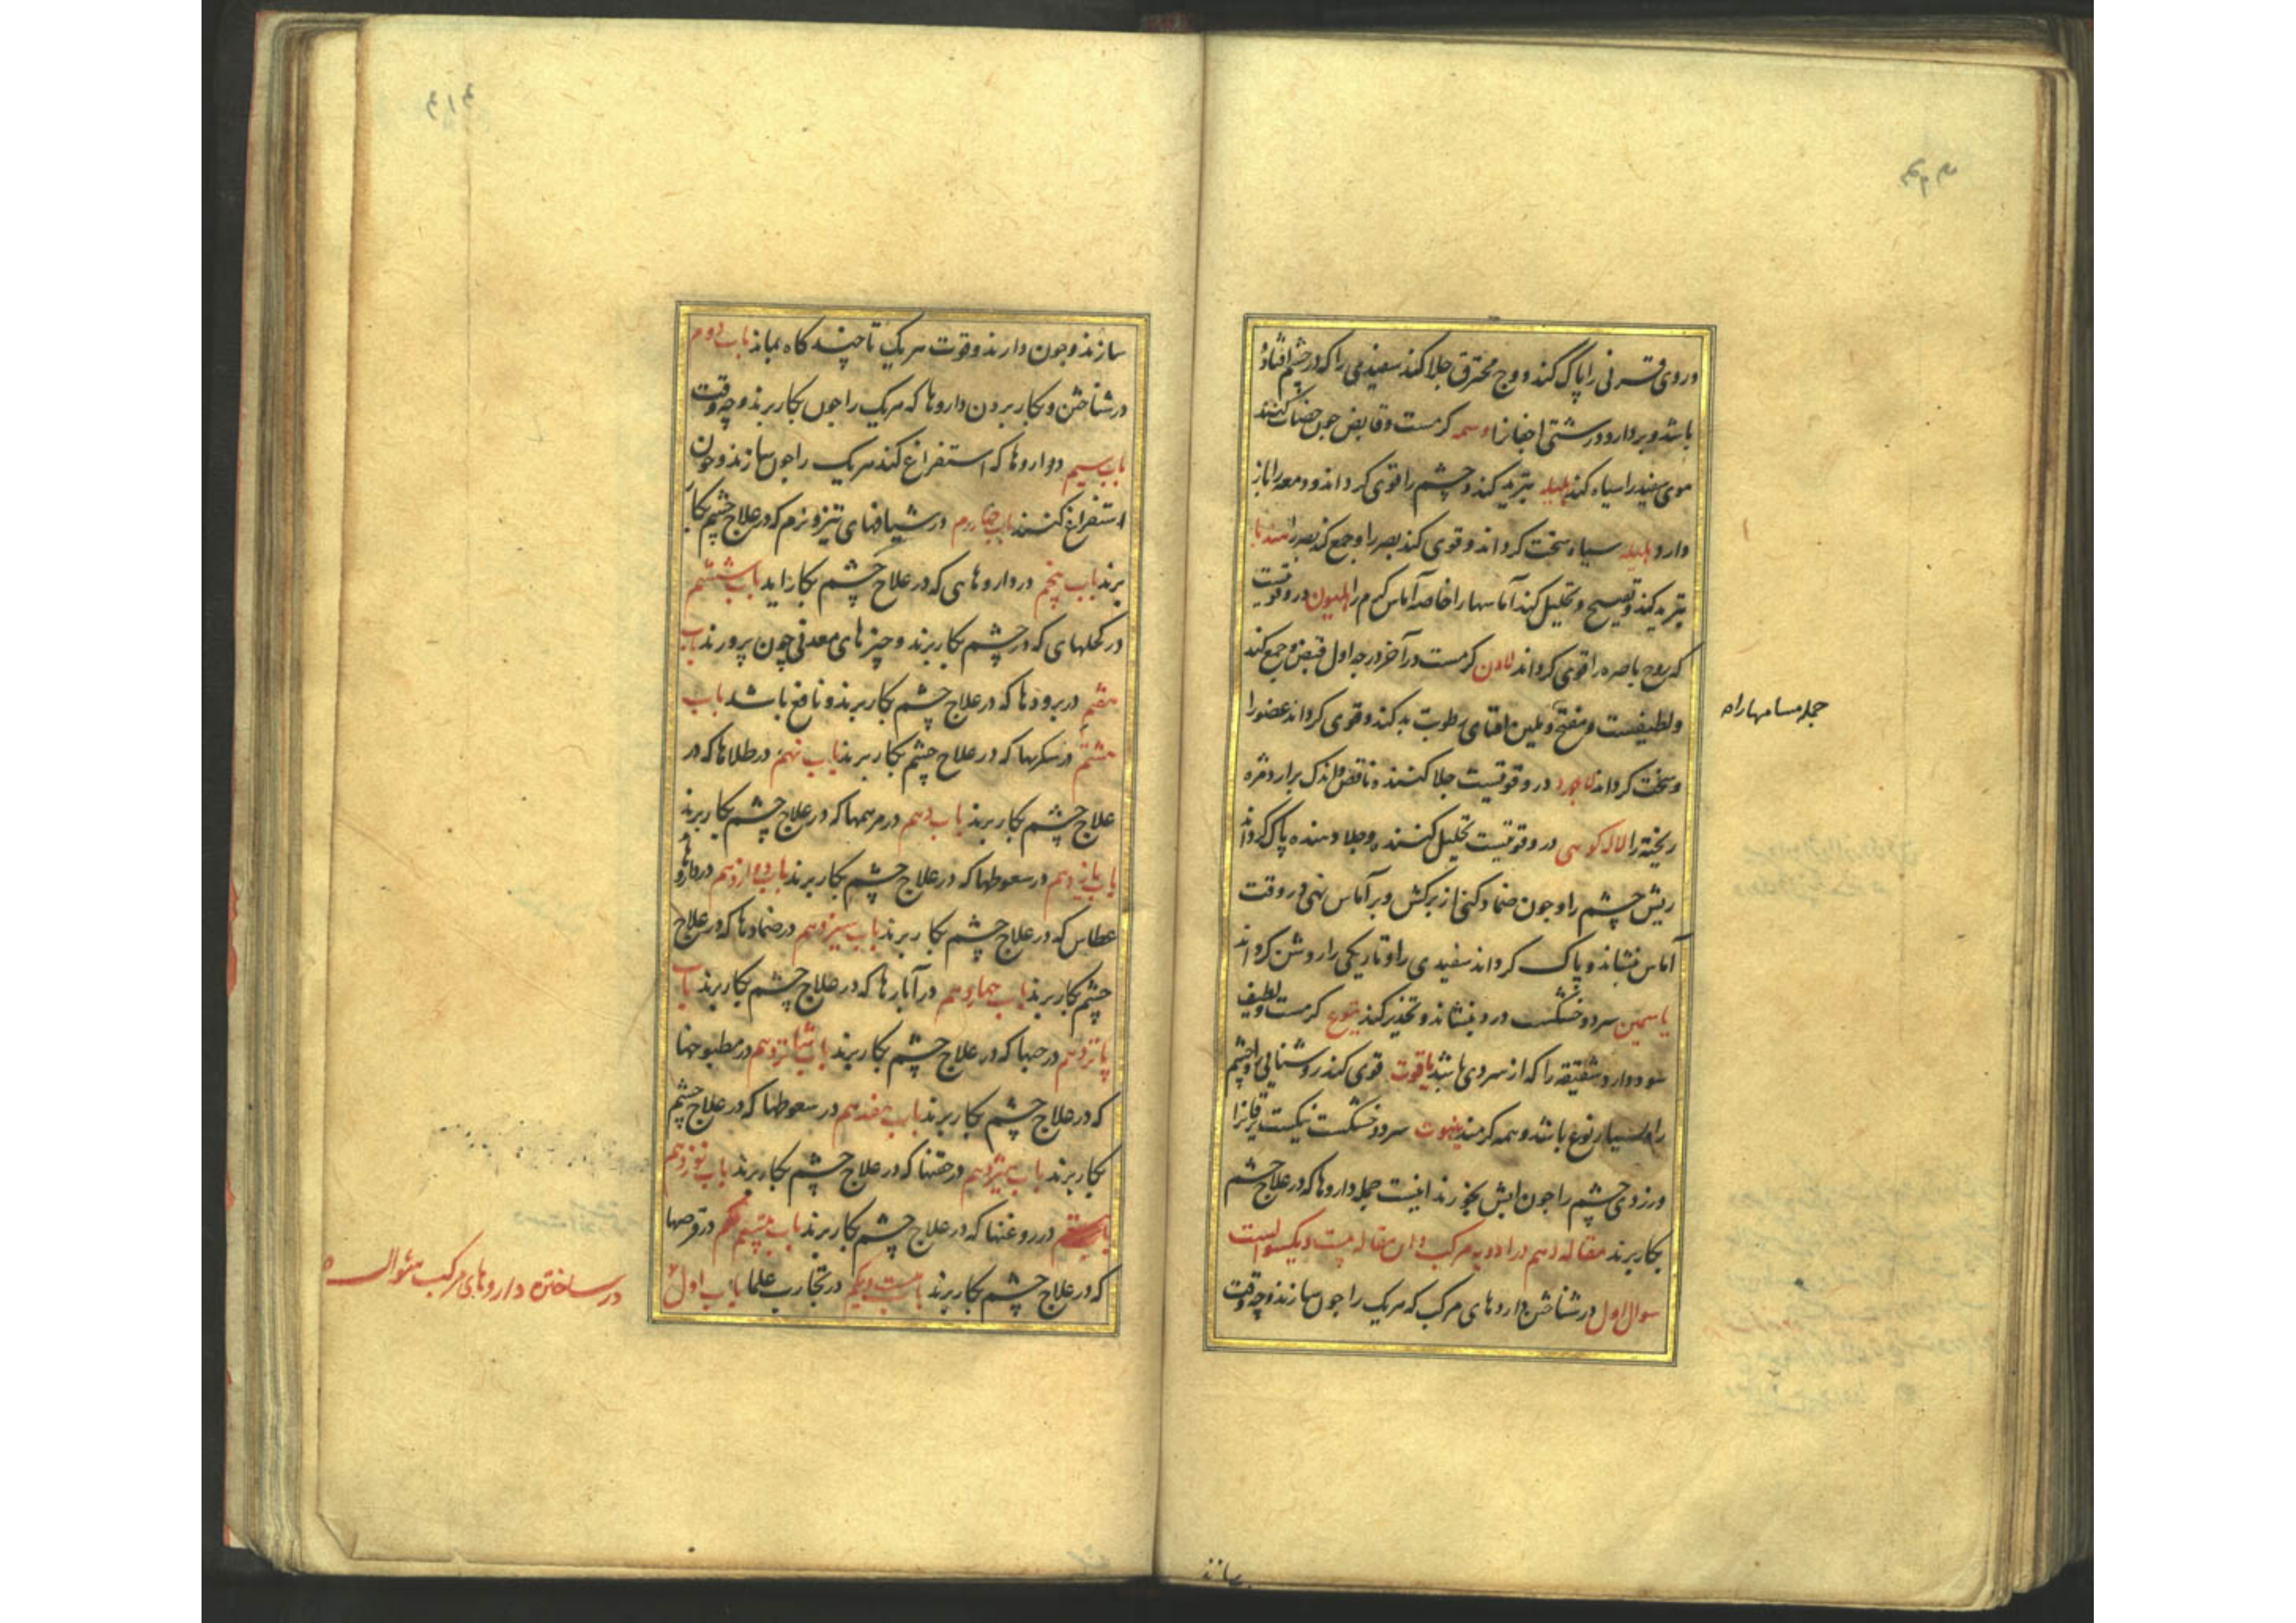 وروی قرنی را پاک کند ووج محترق جلا کند سفیدی را که در چشم افتاده
باشد وبردارد درشتی اجفانرا وسمه کرمست وقابض چون خضاب کنند
موی سفید را سیاه کند هلیله تبرید کند وچشم را قوی کرداند ودمعه را باز
دارد هلیله سیاه سخت کرداند وقوی کند بصر را وجمع کند بصر را هندبا
تبرید کند وتفتیح وتحلیل کند آماسها را خاصه آماس کرم را هلیون در وقوتیست
که روح باصره را قوی کرداند لادن کرمست در آخر درجه اول قبض وجمع کند
ولطیفست ومفتح وملین افتای رطوبت بد کند وقوی کرداند عضو را
وسخت کرداند لاجورد در وقوتیست جلا کننده وناقص واندک برارد مژه
ریخته را لاله کوهی در وقوتیست تحلیل کننده وجلا دهنده پاک کرداند
ریش چشم را وچون ضماد کنی از برکش وبر آماس نهی در وقت
آماس بنشاند وپاک کرداند سفیدی را وتاریکی را روشن کرداند
یاسمین سرد وخشکست درد بنشاند وتخدیر کند یتوع کرمست ولطیف
سود دارد شقیقه را که از سردی باشد یاقوت قوی کند روشنایی چشم
را وبسیار نوع باشد وهمه کرمند ینبوت سرد وخشکست نیکست یرقانرا
وزردی چشم را چون آبش بخورند اینست جمله داروها که در علاج چشم
بکار برند مقاله دهم در ادویه مرکب وان مقاله بیست ویک سوالست
سوال اول در شناختن داروهای مرکب که هریک را چون سازند وچه وقت
جمله مسامها راه
سازند
سازند وچون دارند وقوت هریک تا چند کاه بماند باب دوم
در شناختن وبکار بردن داروها که هریک را چون بکار برند وچه وقت
باب سیم دواروها که استفراغ کند هریک را چون سازند وچون
استفراغ کنند باب چهارم در شیافهای تیز ونرم که در علاج چشم بکار
برند باب پنجم در داروهایی که در علاج چشم بکار آید باب ششم
در کحلهای که در چشم بکار برند وچیزهای معدنی چون پرورند باب
هفتم در برودها که در علاج چشم بکار برند ونافع باشد باب
هشتم در سکرها که در علاج چشم بکار برند باب نهم در طلاها که در
علاج چشم بکار برند باب دهم در مرهمها که در علاج چشم بکار برند
باب یازدهم در سعوطها که در علاج چشم بکار برند باب دوازدهم در داروهاء
عطاس که در علاج چشم بکار برند باب سیزدهم در ضمادها که در علاج
چشم بکار برند باب چهاردهم در آبارها که در علاج چشم بکار برند باب
پانزدهم در حبها که در علاج چشم بکار برند باب شانزدهم در مطبوخها
که در علاج چشم بکار برند باب هفدهم در سعوطها که در علاج چشم
بکار برند باب هیژدهم در حقنها که در علاج چشم بکار برند باب نوزدهم
در روغنها که در علاج چشم بکار برند باب بیستم در قرصها
که در علاج چشم بکار برند باب بیست ویکم در تجارب علما باب اول
در ساختن داروهای مرکب سوال